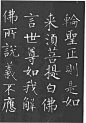 輪聖王則是如
来須菩提白佛
言世尊如我解
佛所說義不應